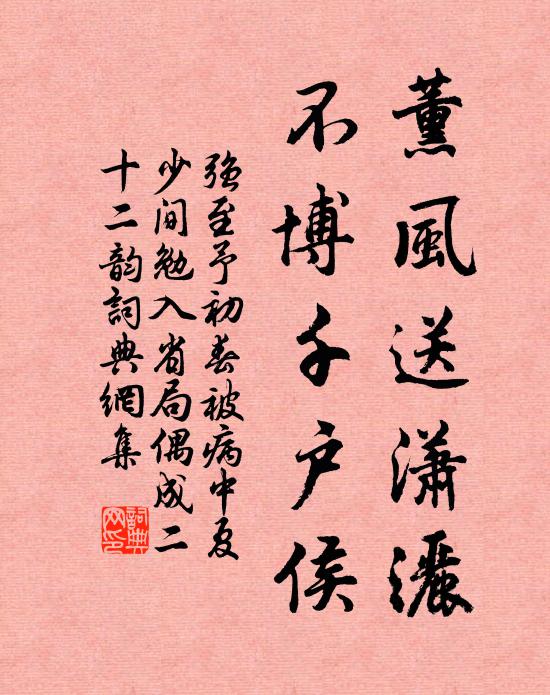 薰風送瀟灑
不博千户侯
強至予初春被病中夏
少间勉入省局偶成二
十二韵詞典網集
詞典网印